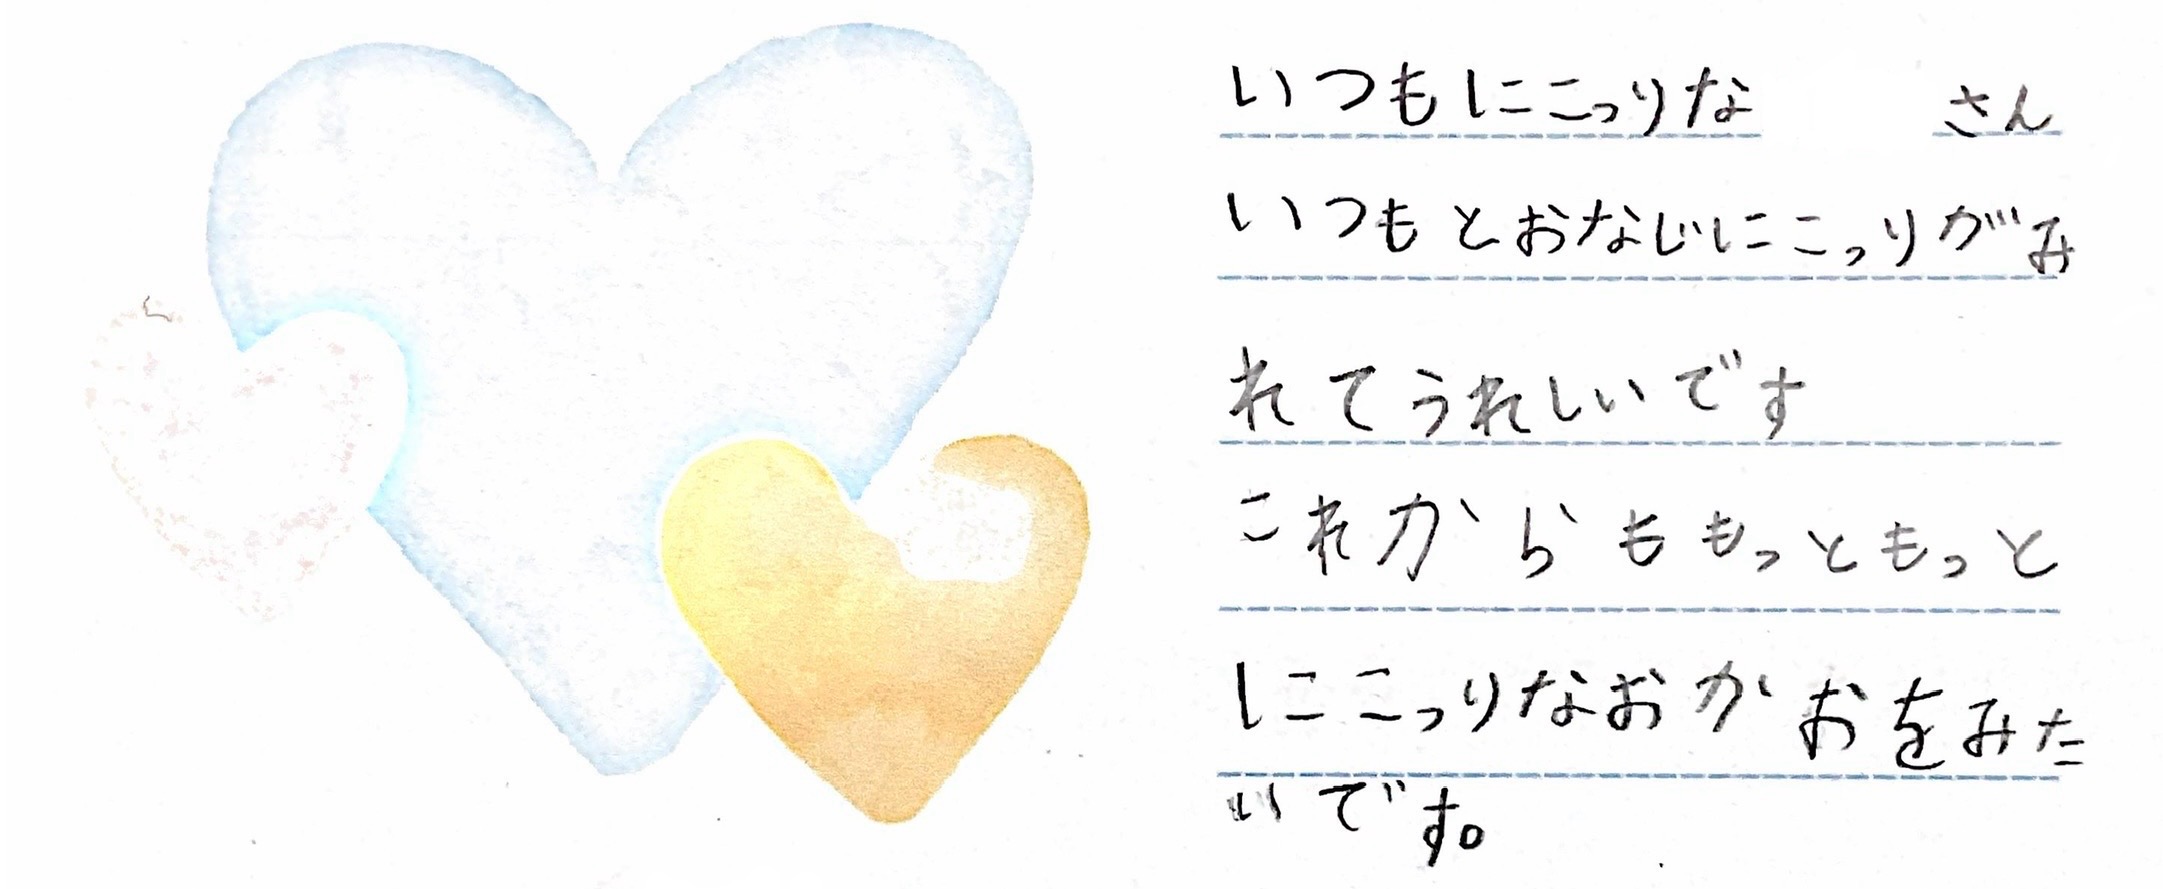 いつもにこっりな さん
いつもとおなじにこっりがみ
れてうれしいです
これからももっともっと
にこっりなおかおをみた
いです。